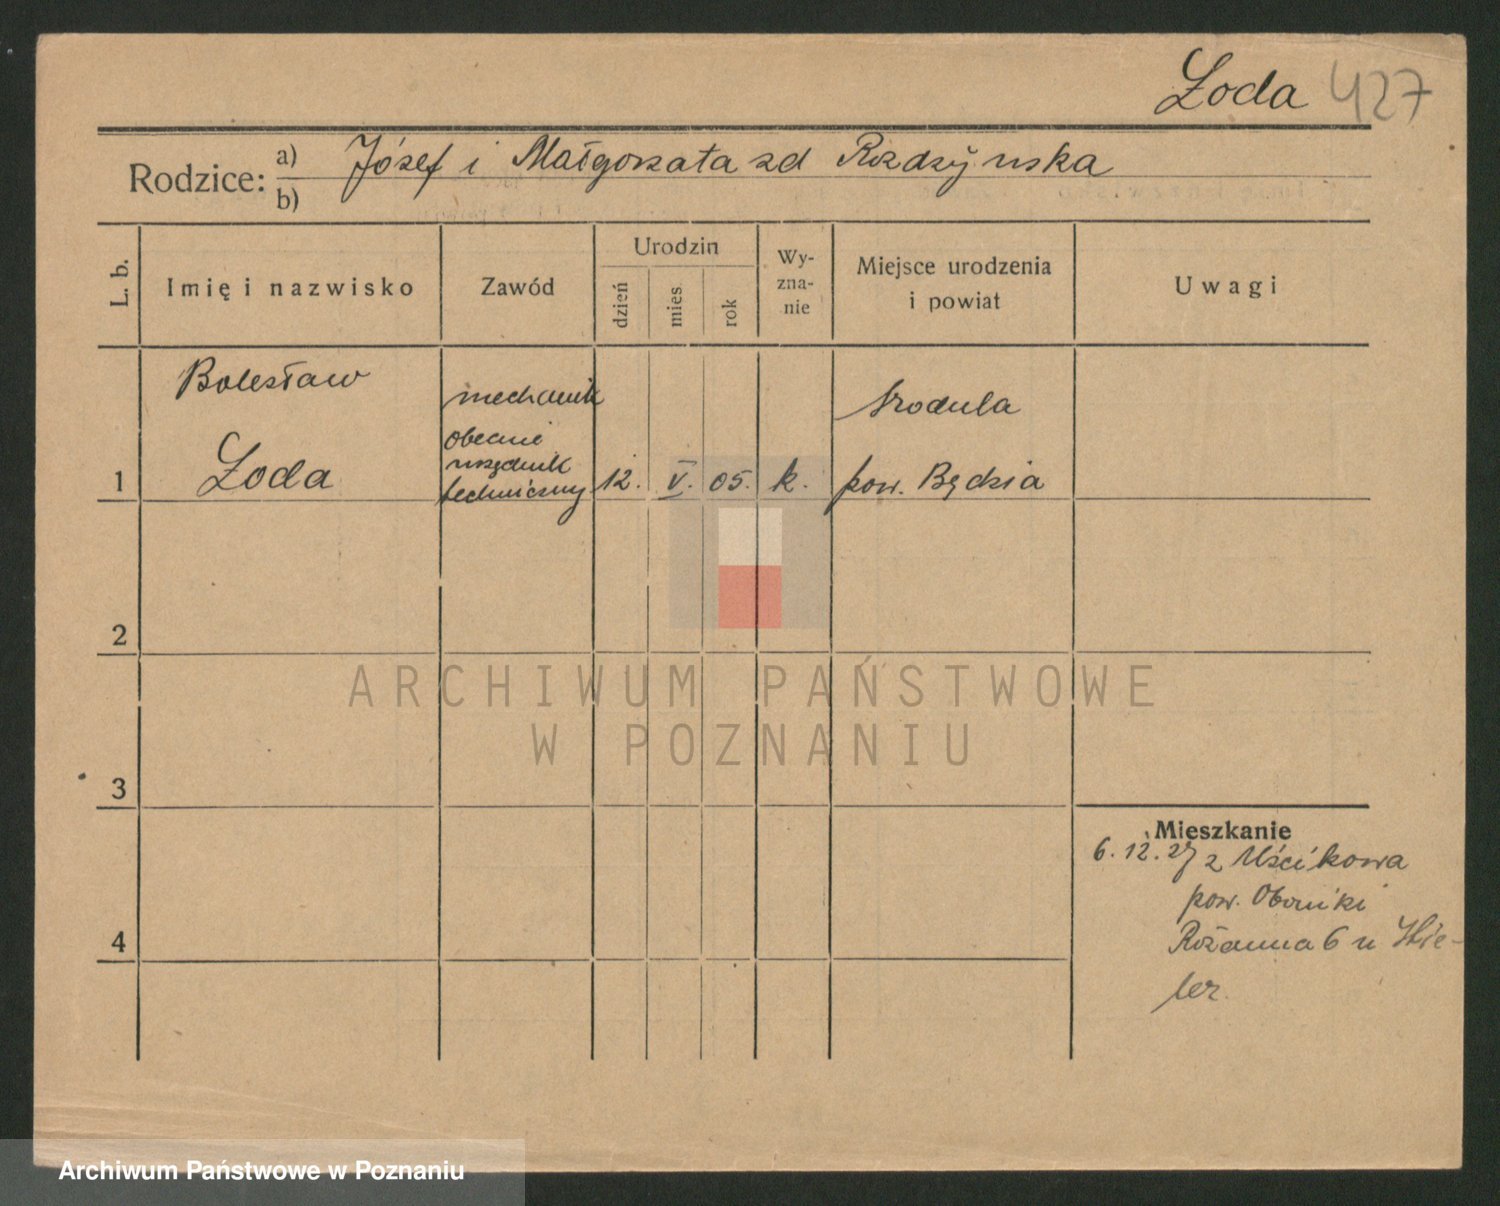 Żoda 427
Rodzice: a) Józef i Małgorzata zd Rozdzyńska
b)
L. b.
Imię i nazwisko
Zawód
Urodzin
dzień
mies
rok
Wy-
zna-
nie
Miejsce urodzenia
i powiat
Uwagi
Bolesław
Żoda
mechanik
obecnie
urzędnik
techniczny
1
12. V. 05. k.
Srodula
pow. Będzin
2
3
4
ARCHIWUM PAŃSTWOWE
W POZNANIU
Mieszkanie
6.12.27 z Uścikowa
pow. Oborniki
Różanna 6 u
Archiwum Państwowe w Poznaniu